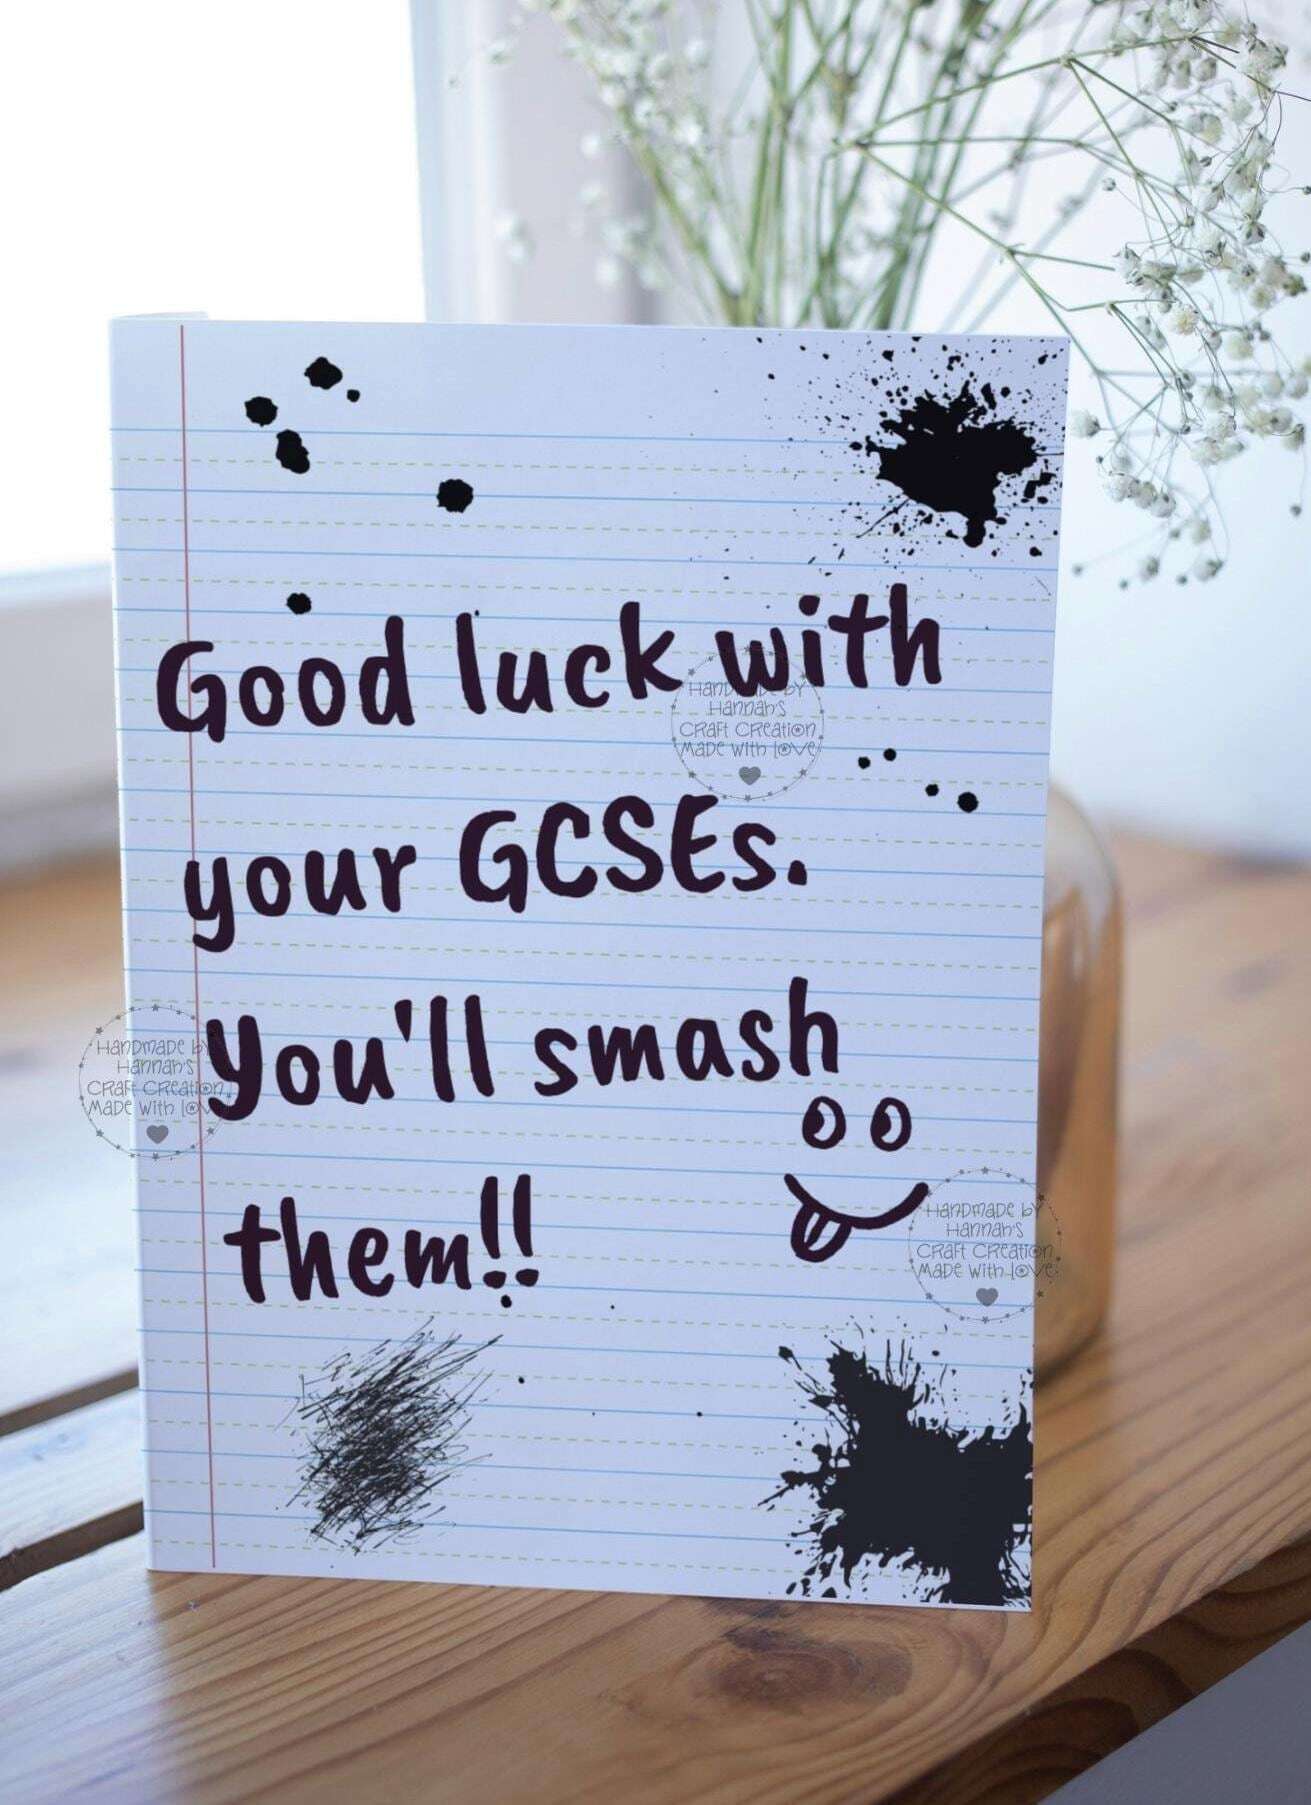 Good luck with
your GCSEs.
You'll smash
them!!
Handmade by
Hannah's
Craft Creation
Made with love
Handmade by
Hannah's
Craft Creation
Made with love
Handmade by
Hannah's
Craft Creation
Made with love